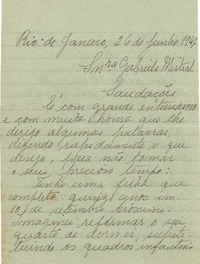 Rio de Janeiro, 26 de Junho, 194
Snra Gabriela Mistral
Saudações
É com grande
e com muita honra que lhe
dirijo algumas palavras,
dizendo rapidamente o que
desejo, para não tomar
o seu precioso tempo:
Tenho uma filha que
completa quinze anos em
de setembro próximo.
Imaginei reformar o seu
quarto de dormir, substi-
tuindo os quadros infantis